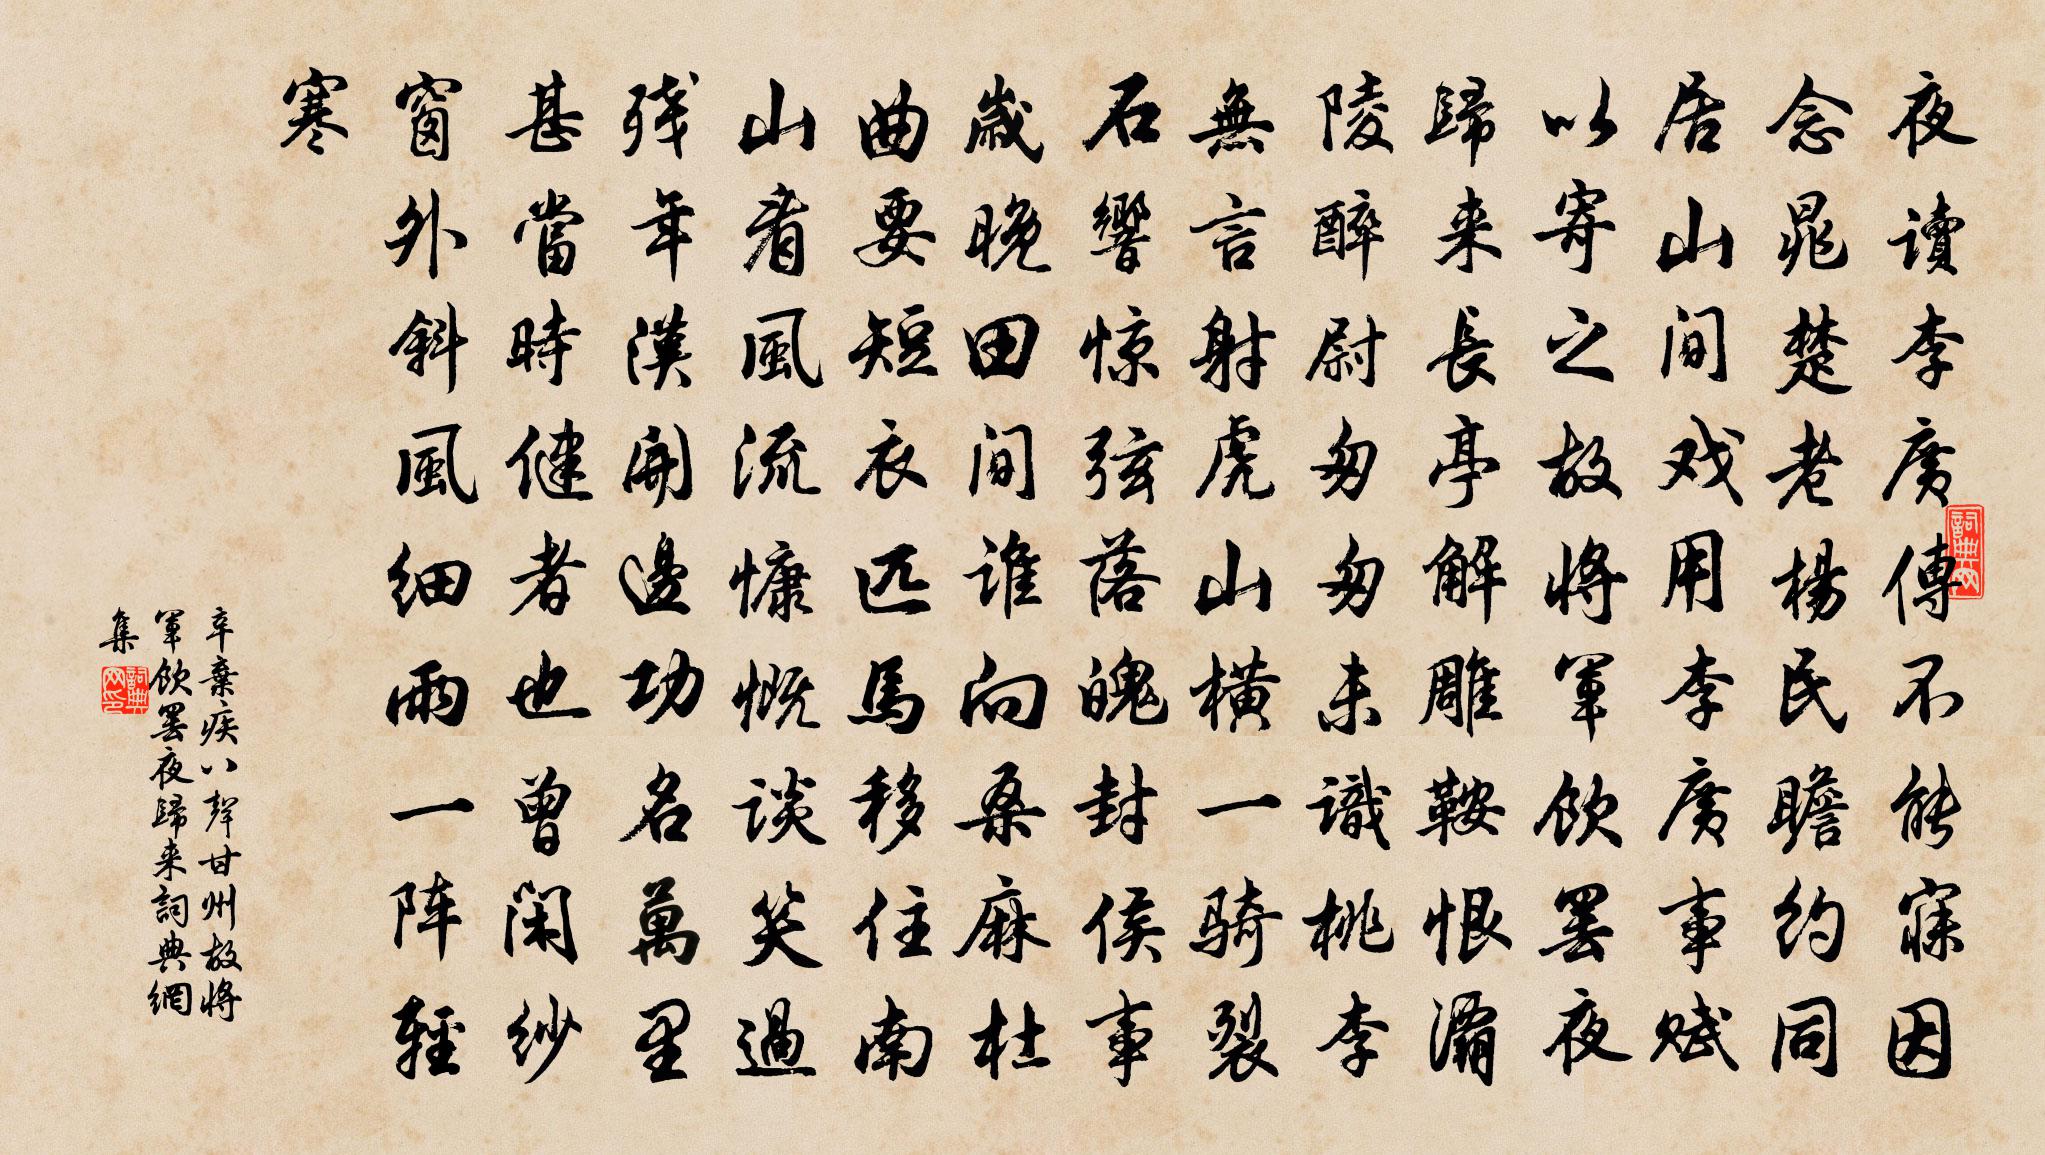 夜讀李廣傳不能寐因
念晁楚老楊民瞻約同
居山间戏用李廣事赋
以寄之故将軍飲罢夜
歸来長亭解雕鞍恨灞
陵醉尉匆匆未識桃李
無言射虎山横一骑裂
石響惊弦落魄封侯事
歲晚田间谁向桑麻杜
曲要短衣匹馬移住南
山看風流慷慨谈笑過
残年漢開邊功名萬里
甚當時健者也曾閑紗
窗外斜風细雨一阵輕
寒
辛棄疾八聲甘州故将
軍飲罢夜歸来詞典網
集
詞典网
詞典网印